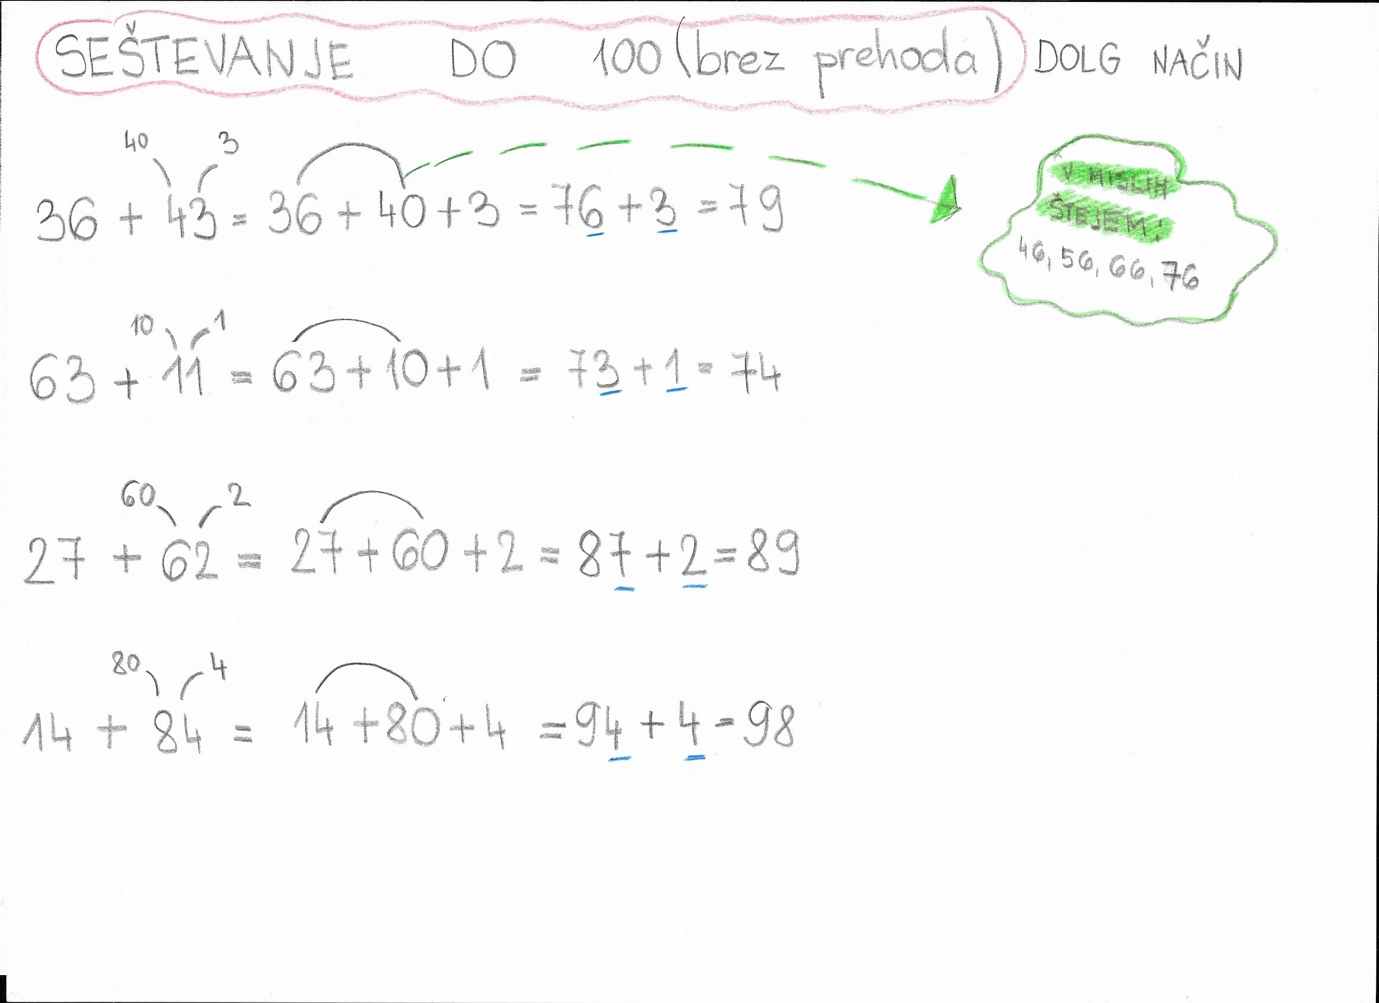 SEŠTEVANJE DO 100 (brez prehoda) DOLG NAČIN
40 3
36 + 43 = 36 + 40 + 3 = 76 + 3 = 79
V MISLIH
ŠTEJEM:
46, 56, 66, 76
10 1
63 + 11 = 63 + 10 + 1 = 73 + 1 = 74
60 2
27 + 62 = 27 + 60 + 2 = 87 + 2 = 89
80 4
14 + 84 = 14 + 80 + 4 = 94 + 4 = 98